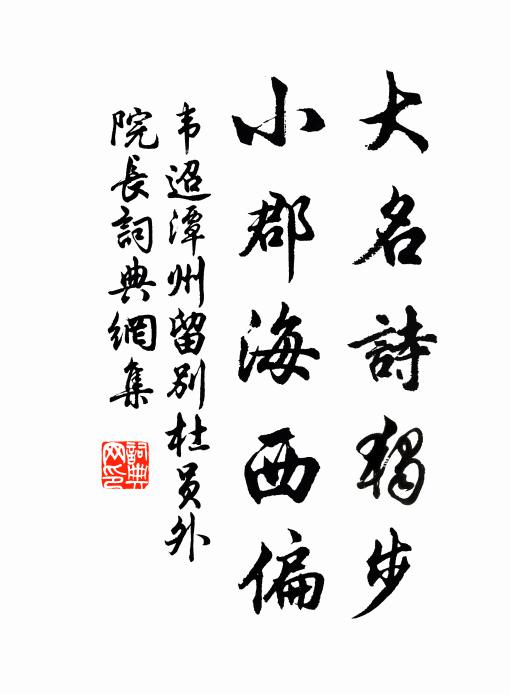 大名詩獨步
小郡海西偏
韦迢潭州留别杜员外
院長詞典網集
詞典網印